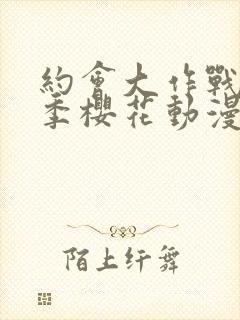 約會大作戰
季櫻花動漫
陌上纤舞